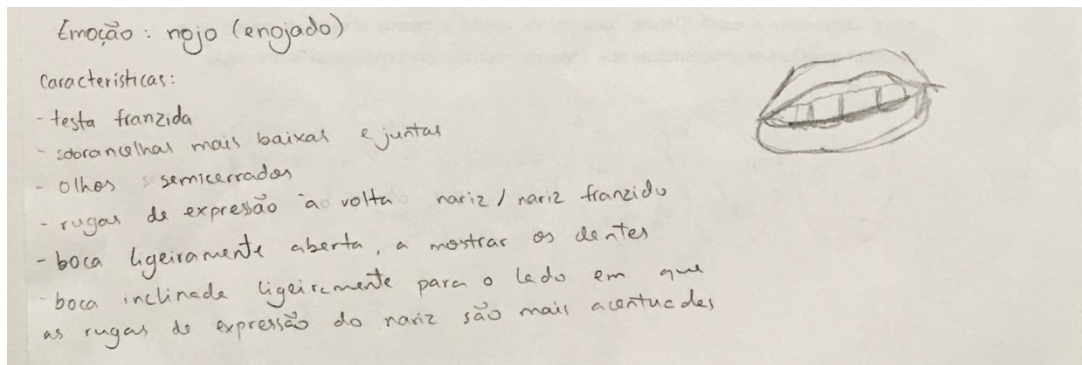 Emoção: nojo (enojado)
Características:
- testa franzida
- sobrancelhas mais baixas e juntas
- olhos semicerrados
- rugas de expressão à volta nariz / nariz franzido
- boca ligeiramente aberta, a mostrar os dentes
- boca inclinada ligeiramente para o lado em que
as rugas de expressão do nariz são mais acentuadas